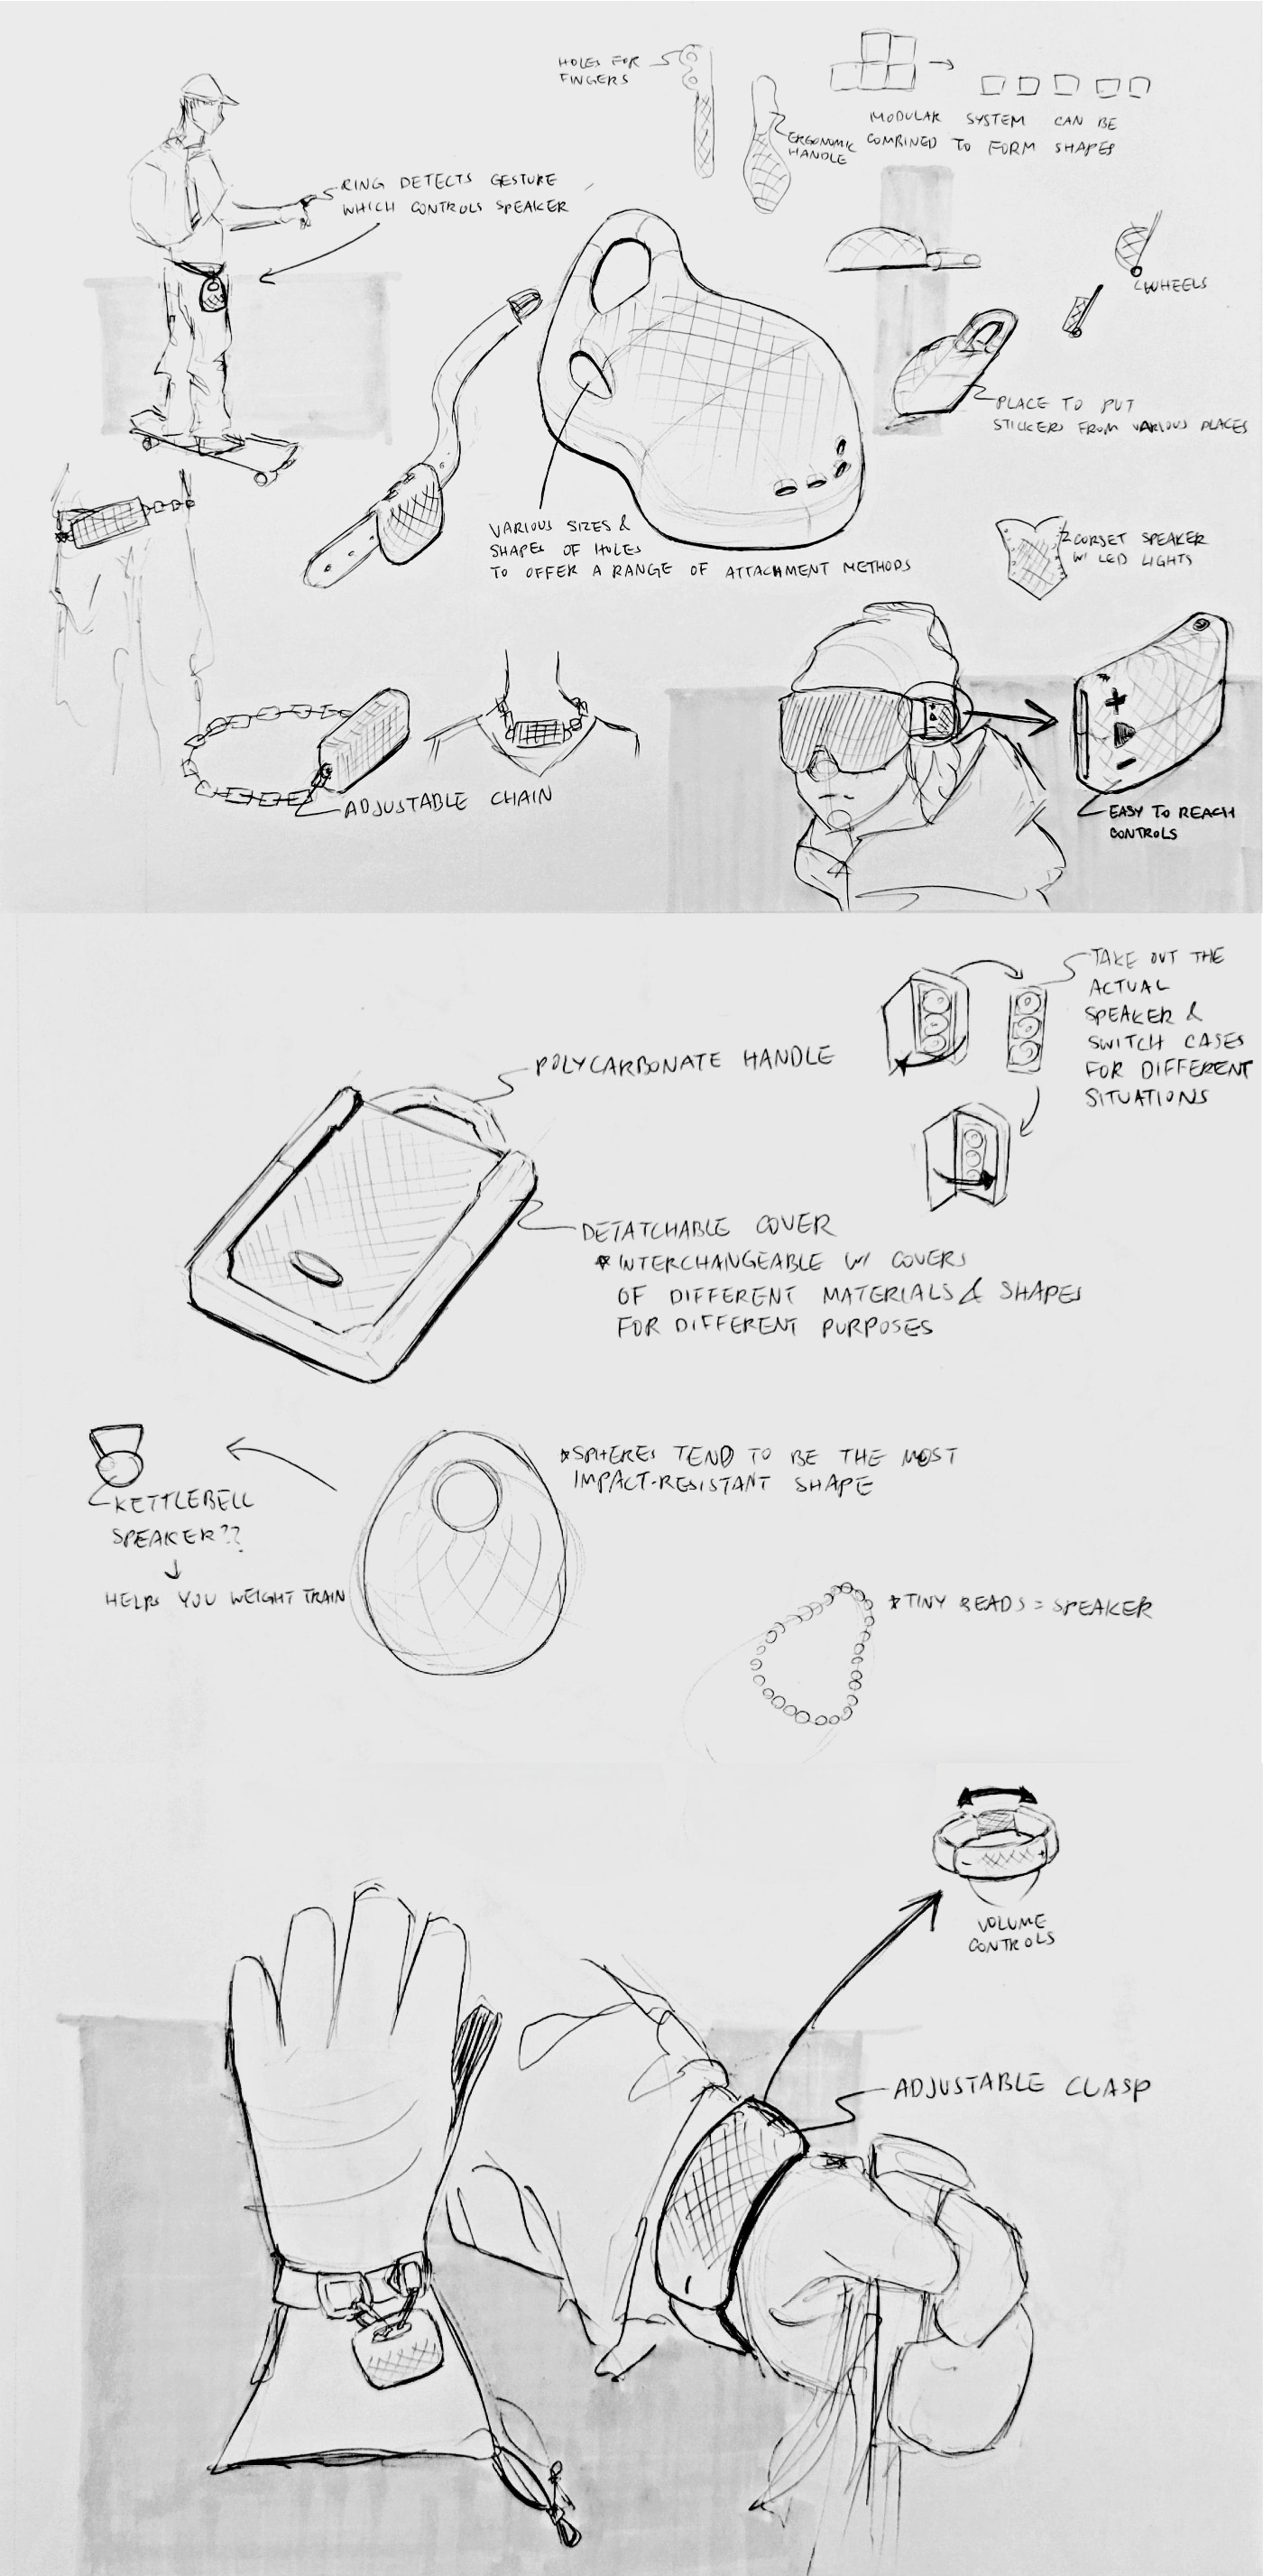 HOLES FOR
FINGERS
ERGONOMIC
HANDLE
MODULAR SYSTEM CAN BE
COMBINED TO FORM SHAPES
RING DETECTS GESTURE
WHICH CONTROLS SPEAKER
WHEELS
PLACE TO PUT
STICKERS FROM VARIOUS PLACES
VARIOUS SIZES &
SHAPES OF HOLES
TO OFFER A RANGE OF ATTACHMENT METHODS
CORSET SPEAKER
W/ LED LIGHTS
ADJUSTABLE CHAIN
+
-
EASY TO REACH
CONTROLS
TAKE OUT THE
ACTUAL
SPEAKER &
SWITCH CASES
FOR DIFFERENT
SITUATIONS
POLYCARBONATE HANDLE
DETATCHABLE COVER
* INTERCHANGEABLE W/ COVERS
OF DIFFERENT MATERIALS & SHAPES
FOR DIFFERENT PURPOSES
* SPHERES TEND TO BE THE MOST
IMPACT-RESISTANT SHAPE
KETTLEBELL
SPEAKER??
HELPS YOU WEIGHT TRAIN
* TINY BEADS = SPEAKER
- +
VOLUME
CONTROLS
ADJUSTABLE CLASP